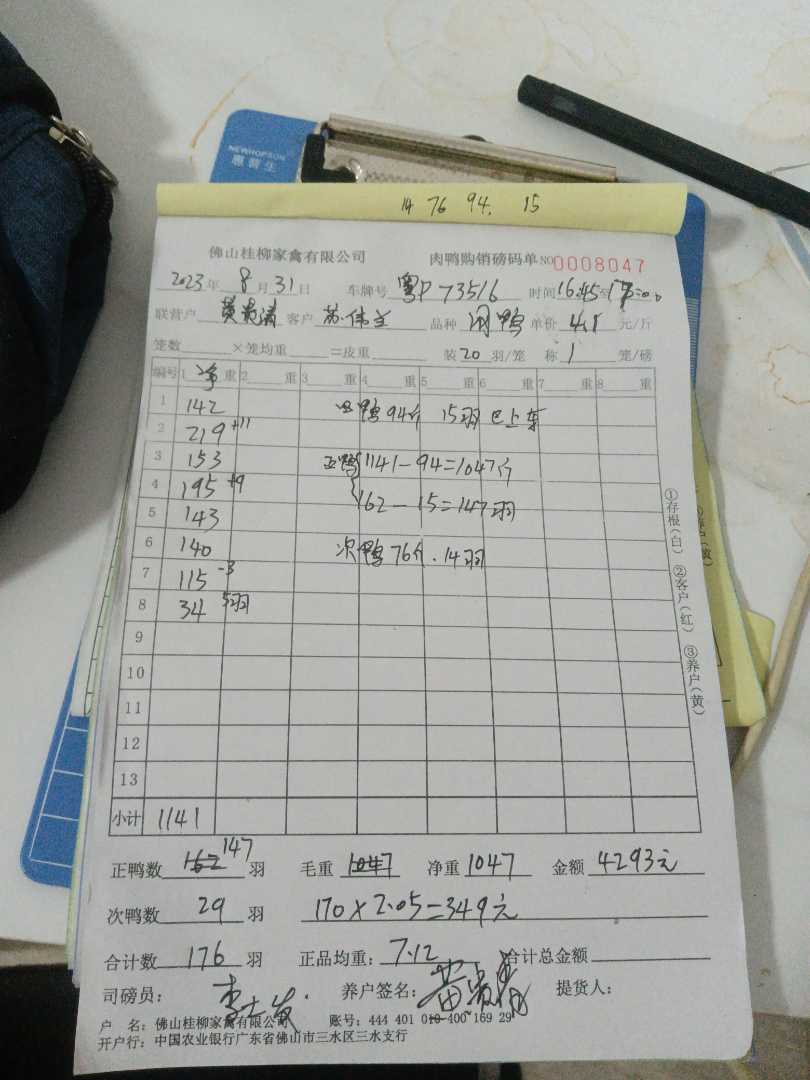 NEWHOPSON
惠普生
14 76 94. 15
佛山桂柳家禽有限公司 肉鸭购销磅码单 NO 0008047
2023年 8月31日 车牌号 粤P 73516 时间16:45至17:00
联营户 黄贵清 客户 苏伟 品种 鸭 单价 4.1 元/斤
笼数 ×笼均重 =皮重 装20羽/笼 称1 笼/磅
编号 1净重 2 重 3 重 4 重 5 重 6 重 7 重 8 重
1 142 鸭94斤 15羽 已上车
2 219 +11
3 153 正鸭 1141-94=1047斤
4 195 +9 162-15=147羽
5 143
6 140 次鸭76斤. 14羽
7 115 -3
8 34 5羽
9
10
11
12
13
小计 1141
正鸭数 162 147 羽 毛重 1047 净重 1047 金额 4293元
次鸭数 29 羽 170×2.05=349元
合计数 176 羽 正品均重: 7.12 合计总金额
司磅员: 养户签名: 黄贵清 提货人:
户 名: 佛山桂柳家禽有限公司 账号: 444 401 010 400 169 29
开户行: 中国农业银行广东省佛山市三水区三水支行
①存根(白) ②客户(红) ③养户(黄)